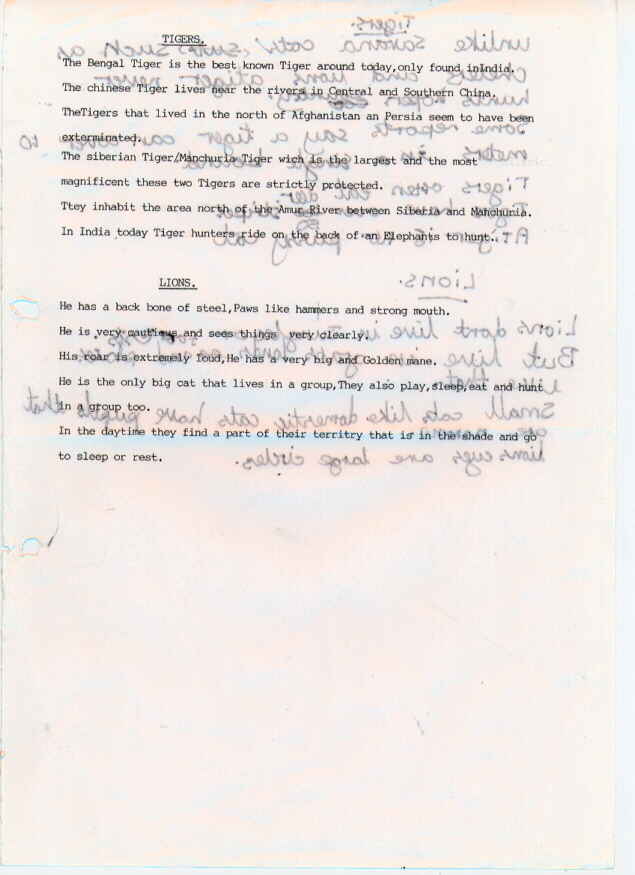 TIGERS.
The Bengal Tiger is the best known Tiger around today,only found inIndia.
The chinese Tiger lives near the rivers in Central and Southern China.
TheTigers that lived in the north of Afghanistan an Persia seem to have been
exterminated.
The siberian Tiger/Manchuria Tiger wich is the largest and the most
magnificent these two Tigers are strictly protected.
Ttey inhabit the area north of the Amur River between Siberia and Manchuria.
In India today Tiger hunters ride on the back of an Elephants to hunt.
LIONS.
He has a back bone of steel,Paws like hammers and strong mouth.
He is very cautious and sees things very clearly.
His roar is extremely loud,He has a very big and Golden mane.
He is the only big cat that lives in a group,They also play,sleep,eat and hunt
in a group too.
In the daytime they find a part of their territry that is in the shade and go
to sleep or rest.
Tigers.
unlike Savana cats, such as
Some reports say a tiger can
Tigers often eat
Lions.
Lions dont live in
But live in
Small cats like domestic cats have pupils that
lions eyes are large circles.